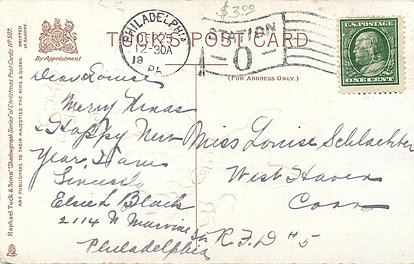 $3.00
PHILADELPHI
DEC 25
12-30A
19
PA.
STATION
O
TUCK'S POST CARD
By Appointment
(FOR ADDRESS ONLY.)
U.S. POSTAGE
ONE CENT
Dear Louise
Merry Xmas
& Happy New
Year, I am
Sincerely
Elsie L Black
2114 N Marvine St
Philadelphia
Miss Louise Schlachter
West Haven
Conn
R.F.D #5
Raphael Tuck & Sons' "Shadowgraph Series" of Christmas Post Cards Nº
ART PUBLISHERS TO THEIR MAJESTIES THE KING & QUEEN.
PRINTED
IN SAXONY.